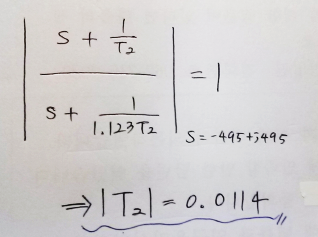 | (S + 1/T₂) / (S + 1/(1.123T₂)) | S=-495+j495 = 1
⇒ |T₂| = 0.0114